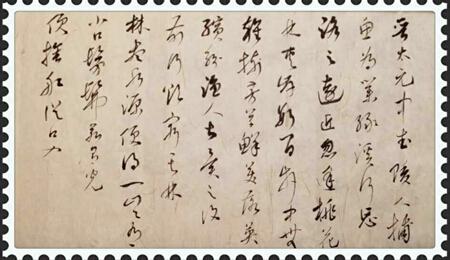 晉太元中武陵人捕
魚為業緣溪行忘
路之遠近忽逢桃花
林夾岸數百步中無
雜樹芳草鮮美落英
繽紛漁人甚異之復
前行欲窮其林
林盡水源便得一山山有
小口髣髴若有光
便捨船從口入